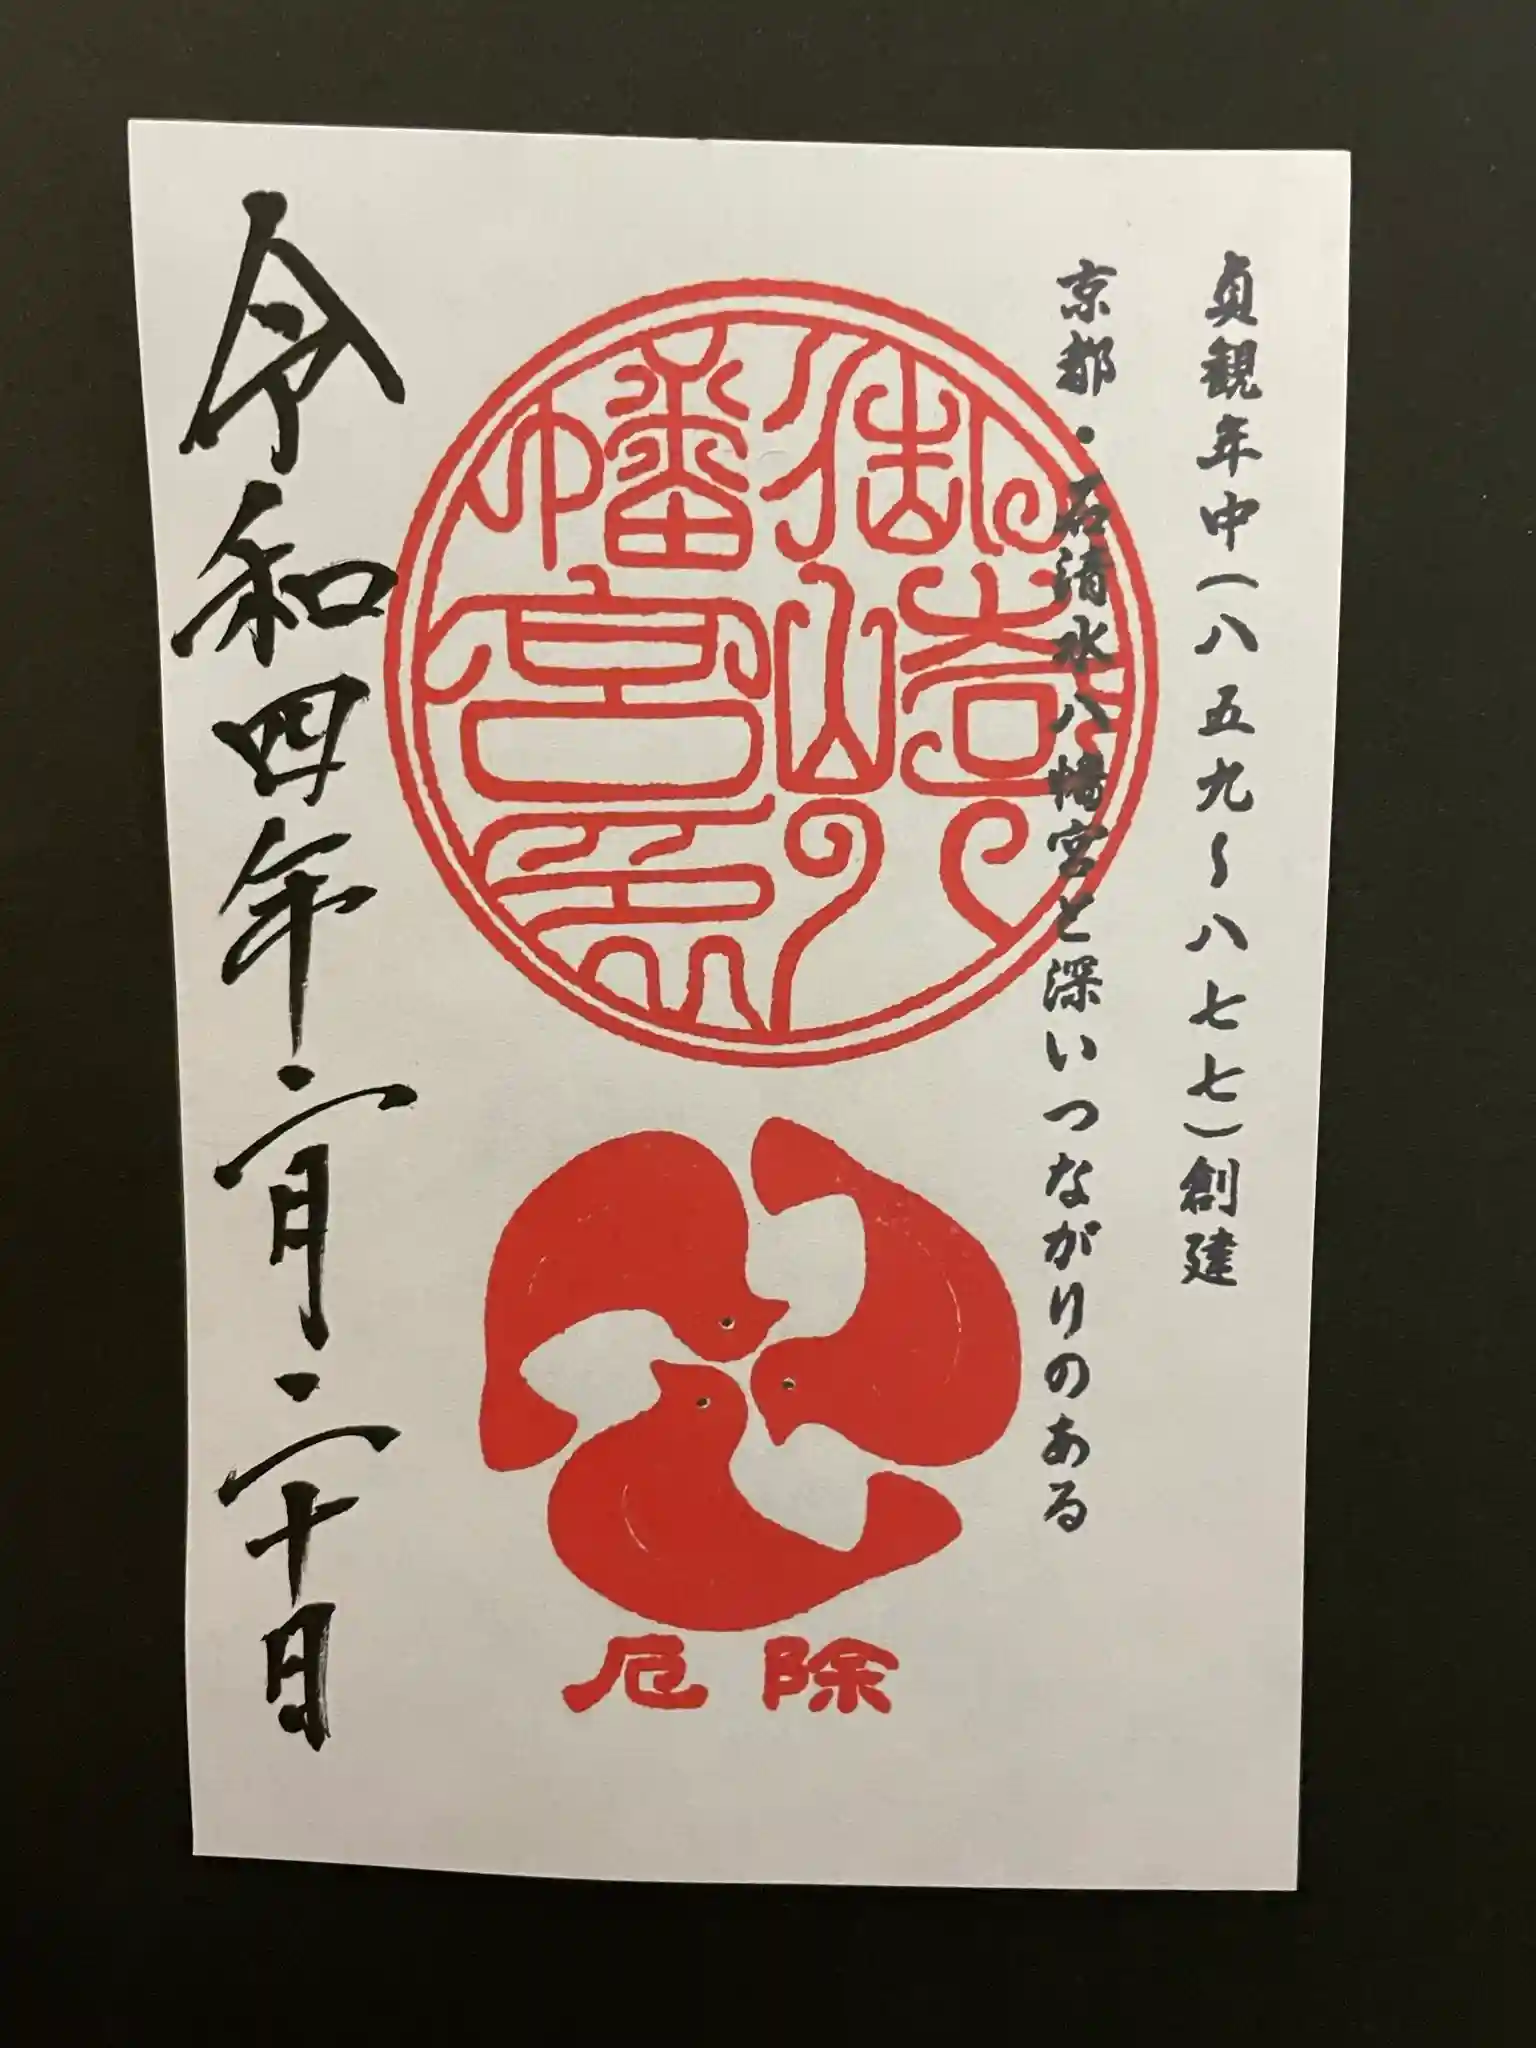 貞観年中(八五九〜八七七)創建
京都・石清水八幡宮と深いつながりのある
御崎八幡宮印
厄除
令和四年二月二十日